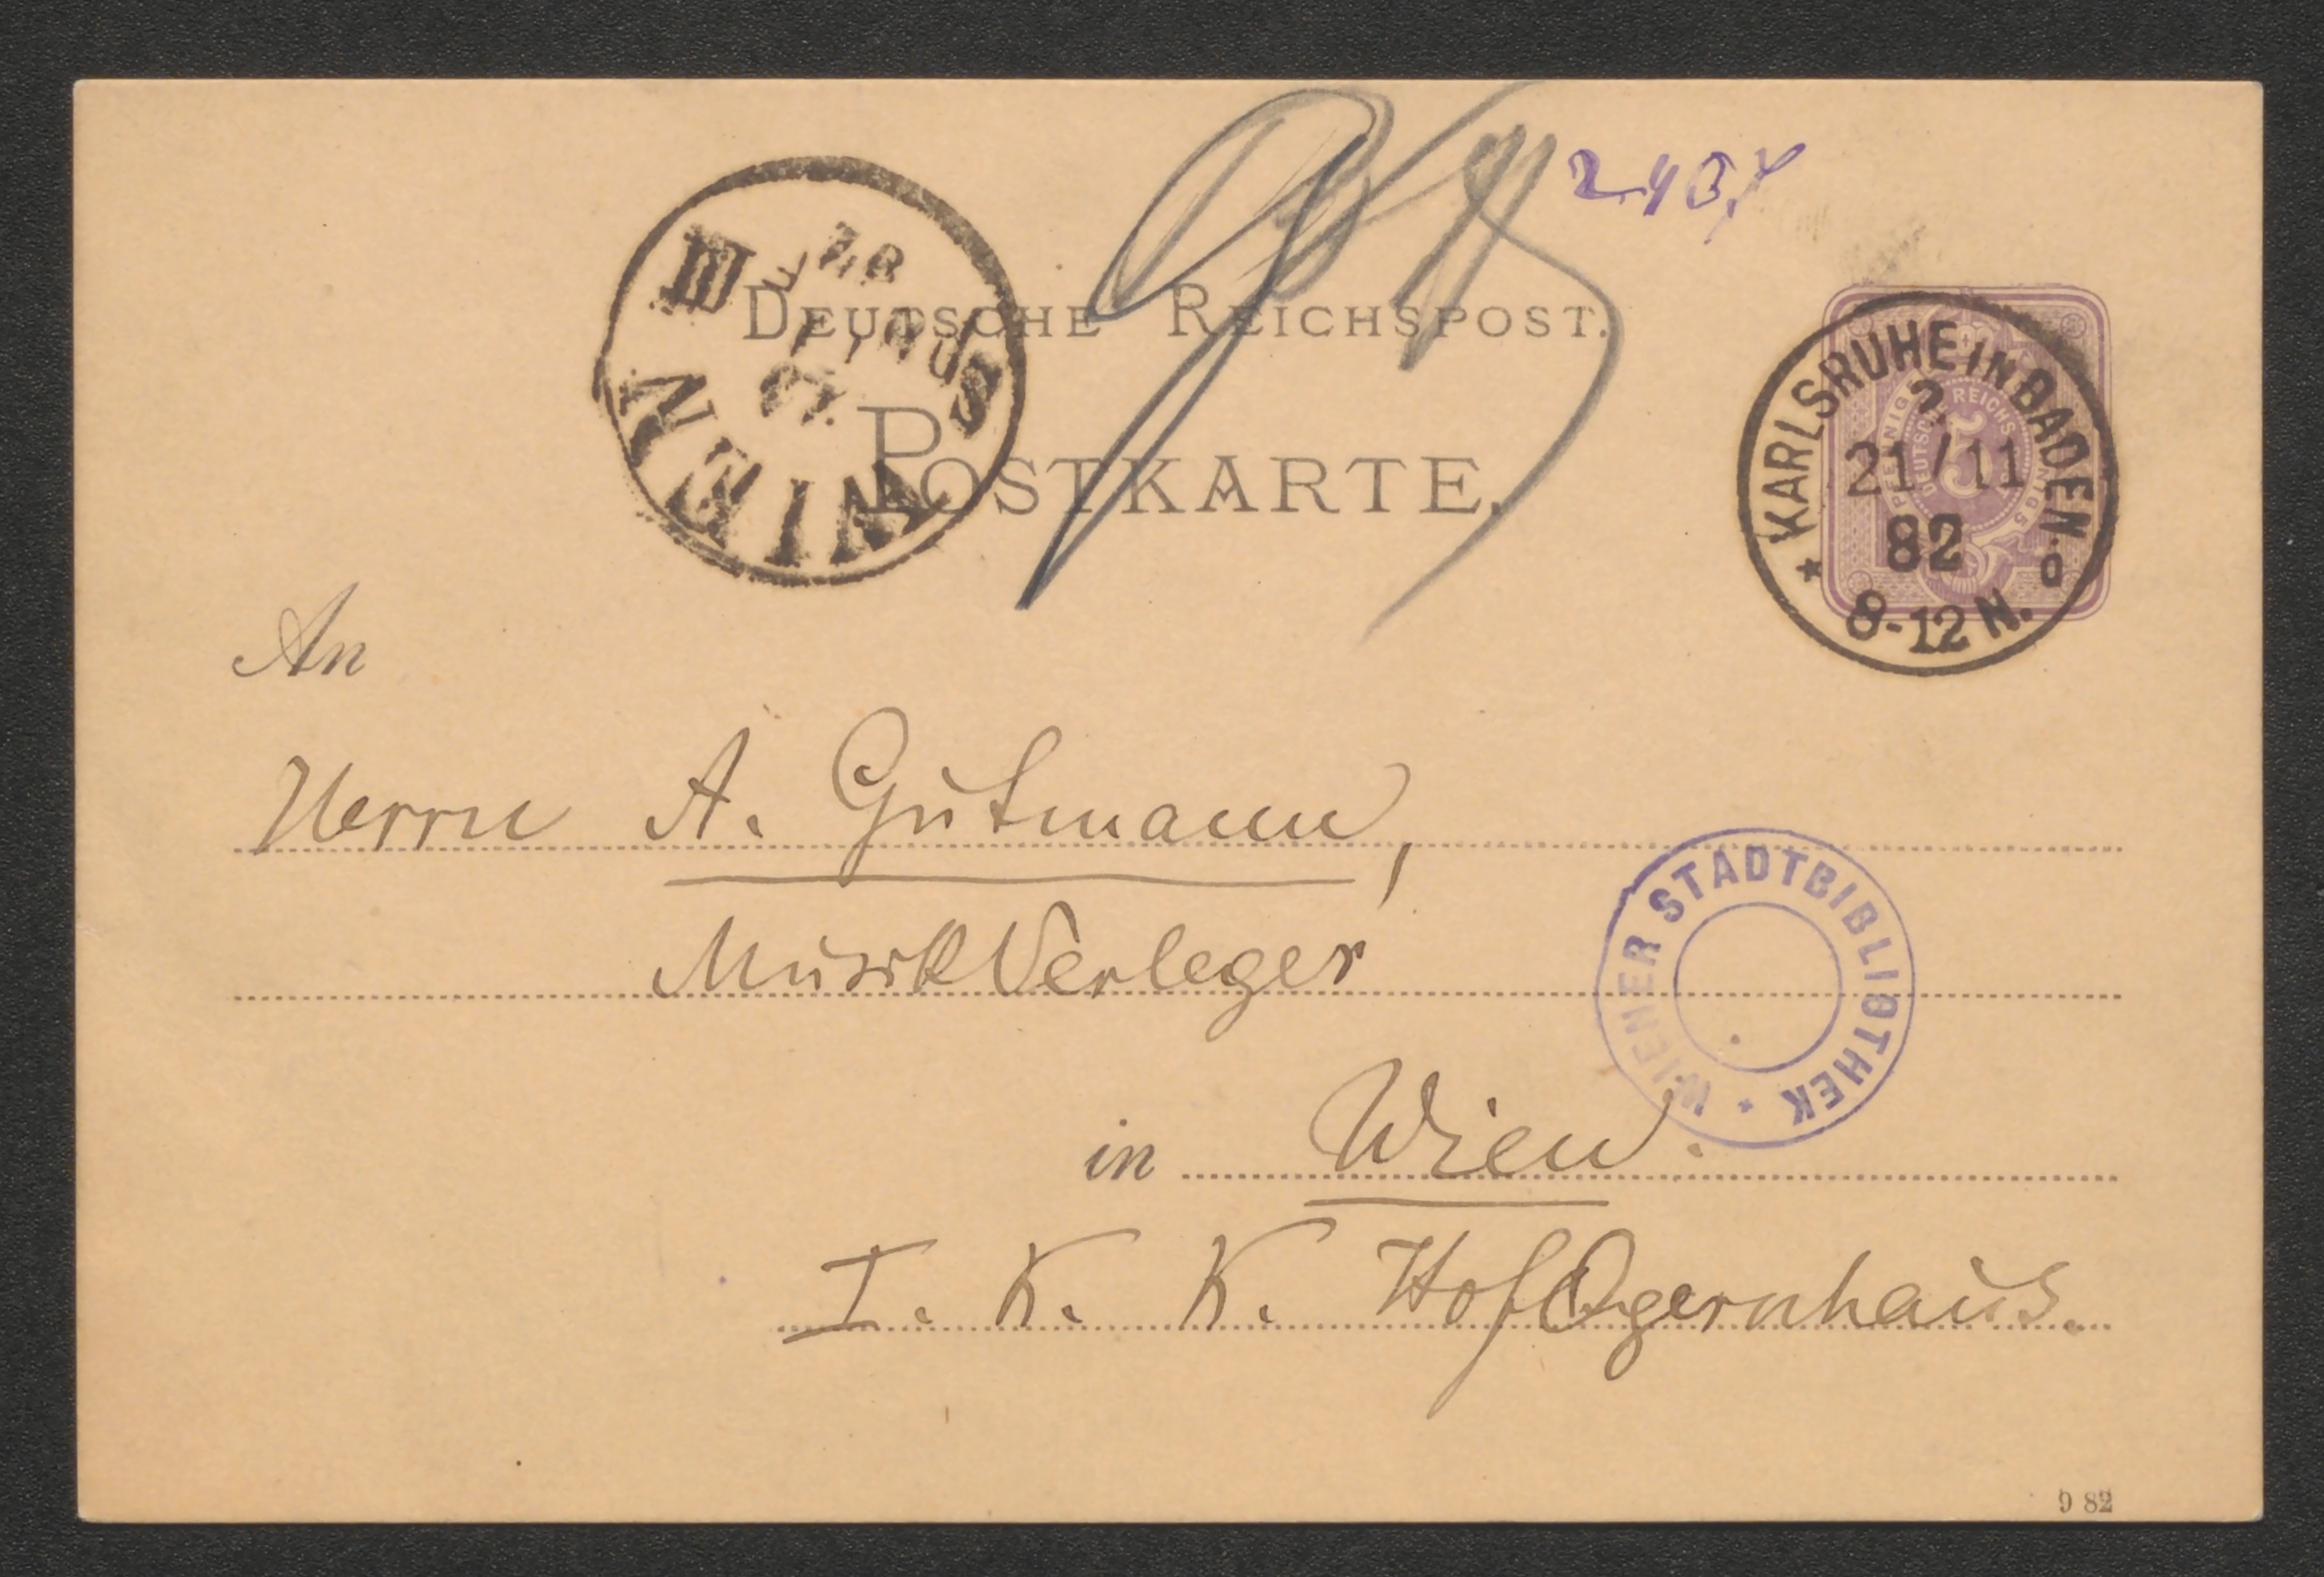 DEUTSCHE REICHSPOST.
POSTKARTE.
WIEN
III
KARLSRUHE IN BADEN.
21/11
82
8-12 N.
An
Herrn A. Gutmann,
Musik Verleger
in Wien.
I. K. K. HofOpernhaus.
WIENER STADTBIBLIOTHEK
9 82